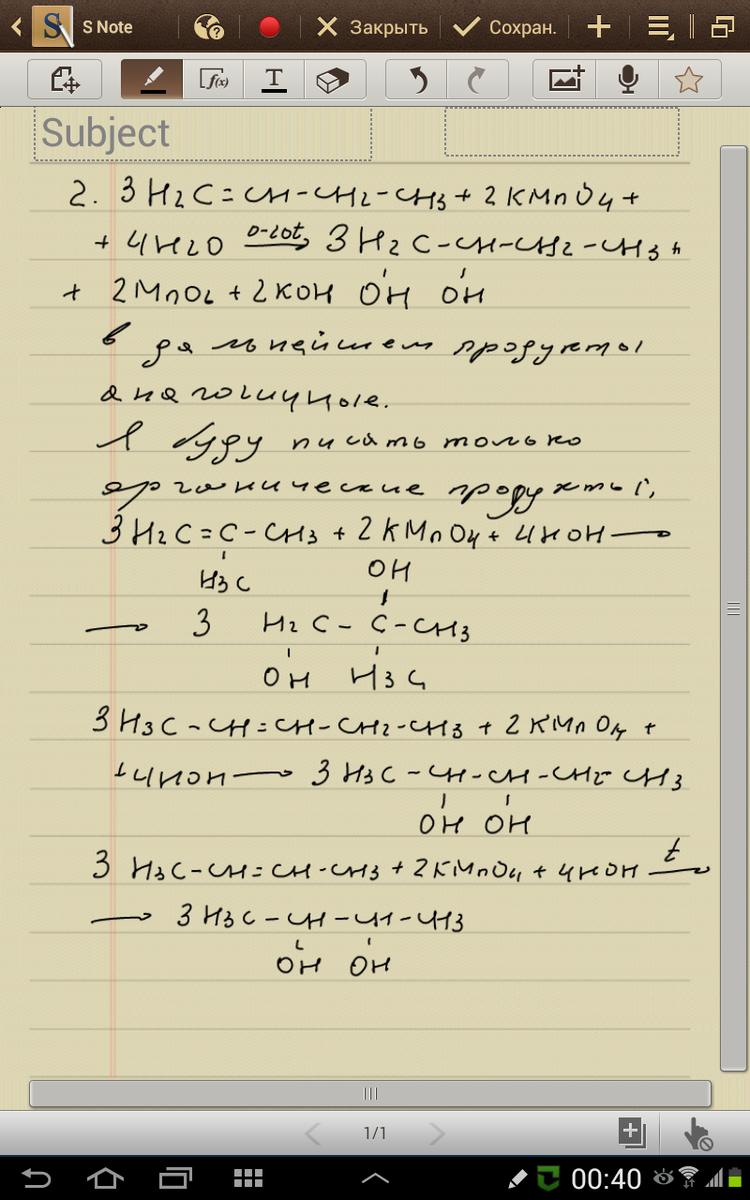 S Note
Закрыть
Сохран.
f(x)
T
Subject
2. 3H2C=CH-CH2-CH3+2KMnO4+
+ 4H2O 0-20t→ 3H2C-CH-CH2-CH3+
+ 2MnO2+2KOH OH OH
в дальнейшем продукты
аналогичные.
Я буду писать только
органические продукты.
3H2C=C-CH3+2KMnO4+4HOH→
H3C OH
→ 3 H2C-C-CH3
OH H3C
3H3C-CH=CH-CH2-CH3+2KMnO4+
+4HOH→ 3H3C-CH-CH-CH2-CH3
OH OH
3 H3C-CH=CH-CH3+2KMnO4+4HOH t→
→ 3H3C-CH-CH-CH3
OH OH
1/1
00:40